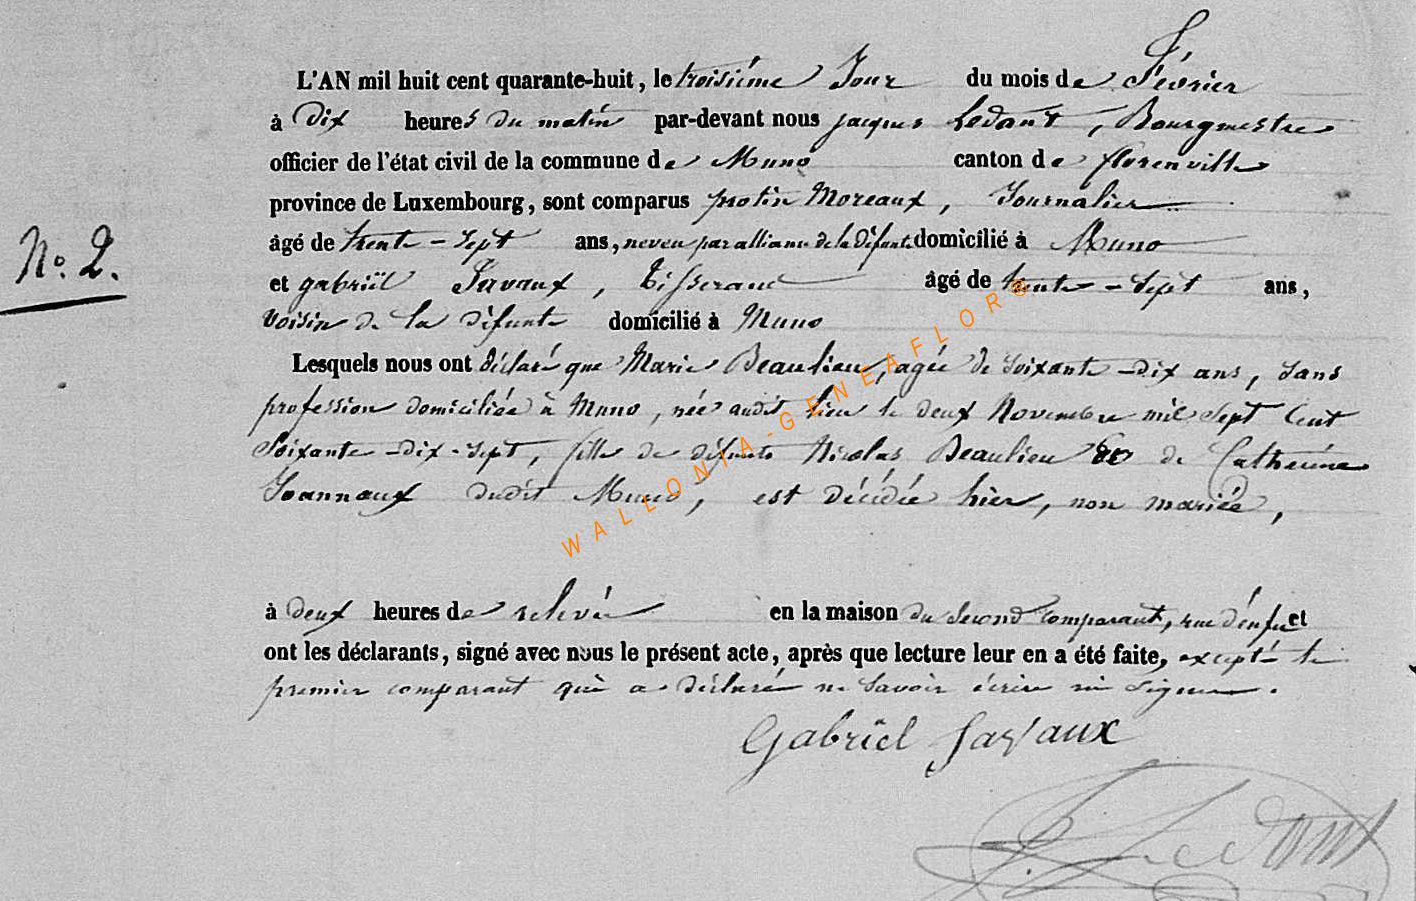 L'AN mil huit cent quarante-huit, le troisième Jour du mois de Février
à Dix heures du matin par-devant nous jacques Ledant, Bourgmestre
officier de l'état civil de la commune de Muno canton de florenville
province de Luxembourg, sont comparus protin Moreaux, Journalier
âgé de trente-sept ans, neveu par alliance de la défunte domicilié à Muno
No. 2.
et gabriël Tisserand âgé de trente-sept ans,
Voisin de la défunte domicilié à Muno
Lesquels nous ont déclaré que Marie Beaulieu, agée de Soixante-dix ans, Sans
profession domiciliée à Muno, née audit lieu le deux Novembre mil Sept Cent
Soixante-dix-Sept, fille de défunts Nicolas Beaulieu de Catherine
Joannaux dudit Muno, est décédée hier, non mariée,
à deux heures de relevée en la maison du Second Comparant, rue d'enfer et
ont les déclarants, signé avec nous le présent acte, après que lecture leur en a été faite, excepté le
premier comparant qui a déclaré ne Savoir écrire ni Signer.
Gabriël
J. Ledant
WALLONIA-GENEAFLOR©